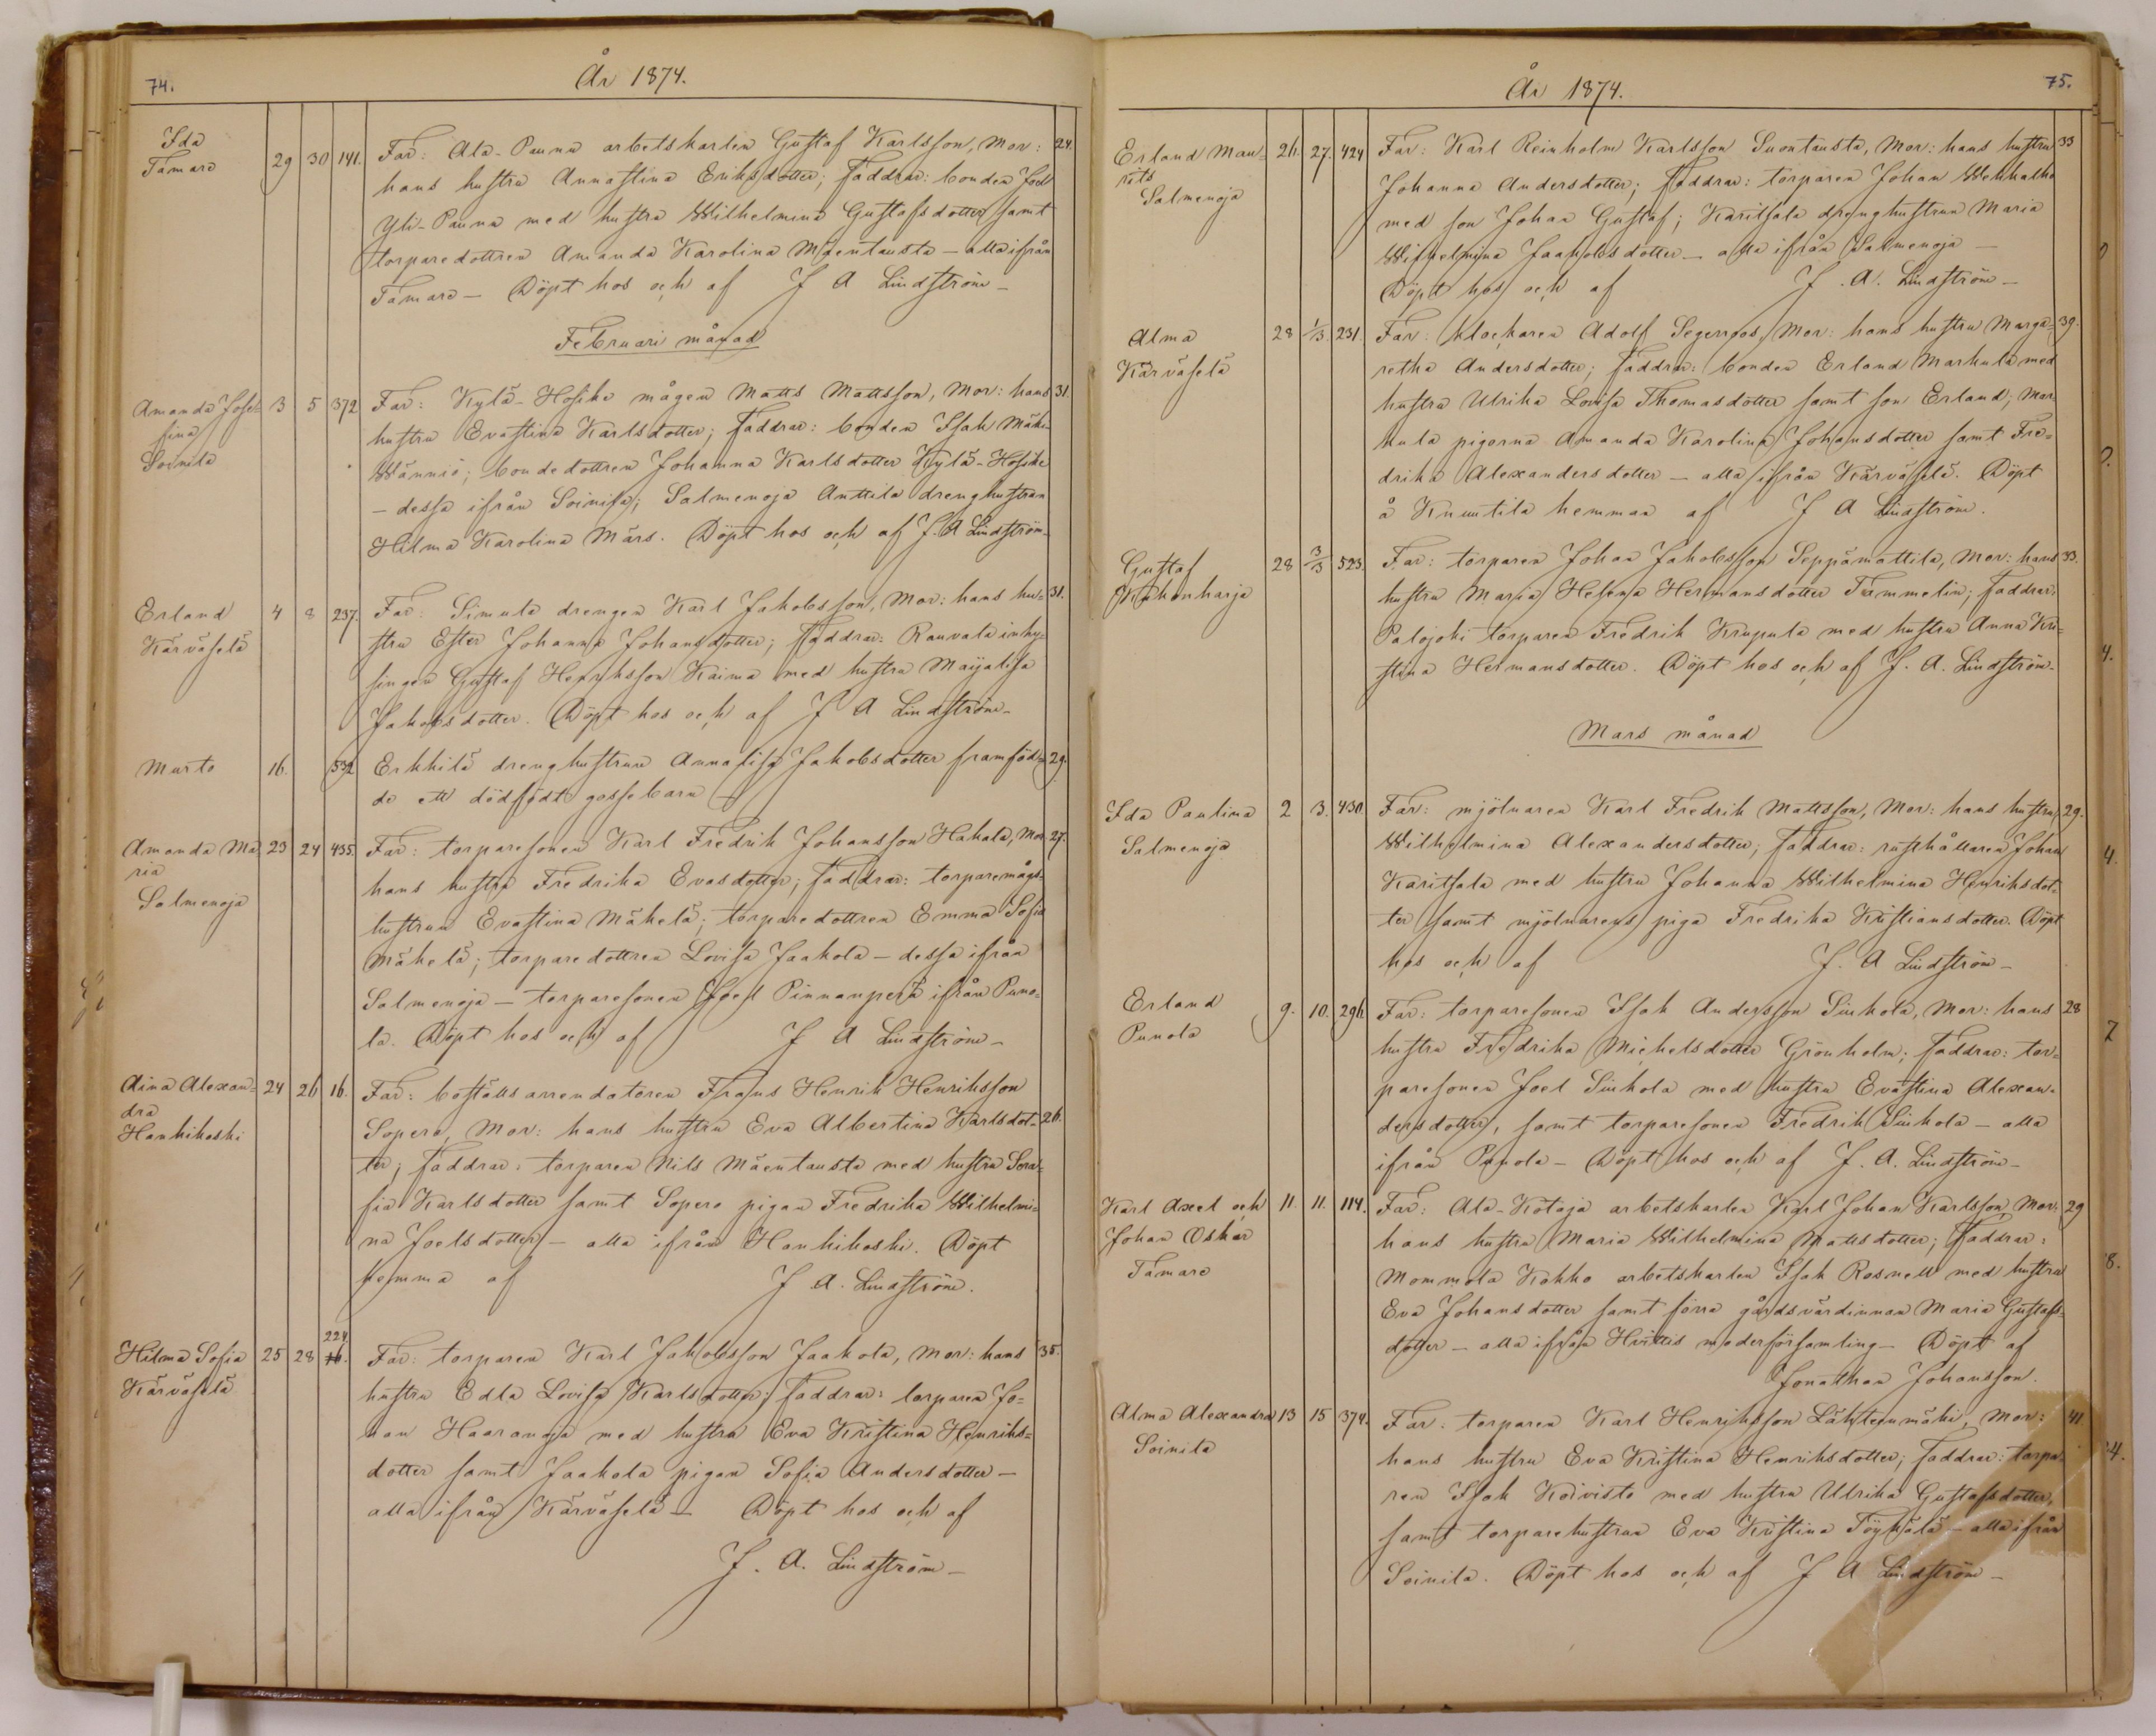 74.
År 1874.
Ida
Tamare
29 30 141.
Far: Ala-Pauna arbetskarlen Gustaf Karlsson, Mor: 24.
hans hustru Annastina Eriksdotter; Faddrar: bonden Joel
Yli-Pauna med hustru Wilhelmina Gustafsdotter samt
torparedottren Amanda Karolina Mäentausta – alla ifrån
Tamare – Döpt hos och af J A Lindström –
Februari månad
Amanda Jose-
fina
Soinila
3 5 372
Far: Kylä-Hosike mågen Matts Mattsson, Mor: hans 31.
hustru Evastina Karlsdotter; Faddrar: bonden Isak Mäki-
Männiö; bondedottren Johanna Karlsdotter Kylä-Hosike
– dessa ifrån Soinila; Salmenoja Anttila drenghustrun
Hilma Karolina Mårs. Döpt hos och af J. A Lindström
Erland
Kärväselä
4 8 237.
Far: Simula drengen Karl Jakobsson, Mor: hans hu- 31.
stru Ester Johanna Johansdotter; Faddrar: Rauvala inhy-
singen Gustaf Henriksson Kaima med hustru Maijalisa
Jakobsdotter. Döpt hos och af J A Lindström –
Murto
16. 532
Erkkilä drenghustrun Annalisa Jakobsdotter framföd- 29.
de ett dödfödt gossebarn –
Amanda Ma-
ria
Salmenoja
23 24 435.
Far: torparesonen Karl Fredrik Johansson Hakala, Mor. 27.
hans hustru Fredrika Evasdotter; Faddrar: torparemågs-
hustrun Evastina Mäkelä; torparedottren Emma Sofia
Mäkelä; torparedottren Lovisa Jaakola – dessa ifrån
Salmenoja – torparesonen Joel Pinnanperä ifrån Puno-
la. Döpt hos och af J A Lindström –
Aina Alexan-
dra
Hankikoski
24 26 16.
Far: boställsarrendatoren Frans Henrik Henriksson
Sopero, Mor: hans hustru Eva Albertina Karlsdot- 26.
ter; Faddrar: torparen Nils Mäentausta med hustru Sera-
fia Karlsdotter samt Sopero pigan Fredrika Wilhelmi-
na Joelsdotter – alla ifrån Hankikoski. Döpt
hemma af J. A. Lindström.
Hilma Sofia
Kärväselä
25 28 224.
16.
Far: torparen Karl Jakobsson Jaakola, Mor: hans 35.
hustru Edla Lovisa Karlsdotter; Faddrar: torparen Jo-
han Haaranoja med hustru Eva Kristina Henriks-
dotter samt Jaakola pigan Sofia Andersdotter –
alla ifrån Kärväselä – Döpt hos och af
J. A. Lindström –
År 1874.
75.
Erland Mau-
rits
Salmenoja
26. 27. 424
Far: Karl Reinholm Karlsson Suontausta, Mor: hans hustru 33
Johanna Andersdotter; Faddrar: torparen Johan Wehkalho
med son Johan Gustaf; Karitsala drenghustrun Maria
Wilhelmina Jaakolsdotter – alla ifrån Salmenoja –
Döpt hos och af J. A. Lindström –
Alma
Kärväselä
28 1/3. 231.
Far: klockaren Adolf Segerroos, Mor: hans hustru Marga- 39.
retha Andersdotter; Faddrar: bonden Erland Markula med
hustru Ulrika Lovisa Thomasdotter samt son Erland; Mar-
kula pigorna Amanda Karolina Johansdotter samt Fre-
drika Alexandersdotter – alla ifrån Kärväselä. Döpt
å Knuutila hemman af J A Lindström.
Gustaf
Kuhonharja
28 3/3 523.
Far: torparen Johan Jakobsson Seppämattila, Mor: hans 33.
hustru Maria Helena Hermansdotter Tammelin; Faddrar:
Palojoki torparen Fredrik Krupula med hustru Anna Kri-
stina Hermansdotter. Döpt hos och af J. A. Lindström.
Mars månad
Ida Paulina
Salmenoja
2 3. 430.
Far: mjölnaren Karl Fredrik Mattsson, Mor: hans hustru 29.
Wilhelmina Alexandersdotter; Faddrar: rusthållaren Johan
Karitsala med hustru Johanna Wilhelmina Henriksdot-
ter samt mjölnarens piga Fredrika Kristiansdotter. Döpt
hos och af J. A Lindström –
Erland
Punola
9. 10. 296.
Far: torparesonen Isak Andersson Siukola, Mor: hans 28
hustru Fredrika Michelsdotter Grönholm; Faddrar: tor-
paresonen Joel Siukola med hustru Evastina Alexan-
dersdotter, samt torparesonen Fredrik Siukola – alla
ifrån Punola – Döpt hos och af J. A. Lindström –
Karl Axel och
Johan Oskar
Tamare
11. 11. 114.
Far: Ala-Kötaja arbetskarlen Karl Johan Karlsson, Mor: 29
hans hustru Maria Wilhelmina Mattsdotter; Faddrar:
Mommola Kokko arbetskarlen Isak Rosnell med hustru
Eva Johansdotter samt förra gårdsvärdinnan Maria Gustafs-
dotter – alla ifrån Hvittis moderförsamling – Döpt af
Jonathan Johansson.
Alma Alexandra
Soinila
13 15 374.
Far: torparen Karl Henriksson Lähteenmäki, Mor: 41.
hans hustru Eva Kristina Henriksdotter; Faddrar: torpa-
ren Isak Koivisto med hustru Ulrika Gustafsdotter,
samt torparehustrun Eva Kristina Töykälä – alla ifrån
Soinila. Döpt hos och af J A Lindström –